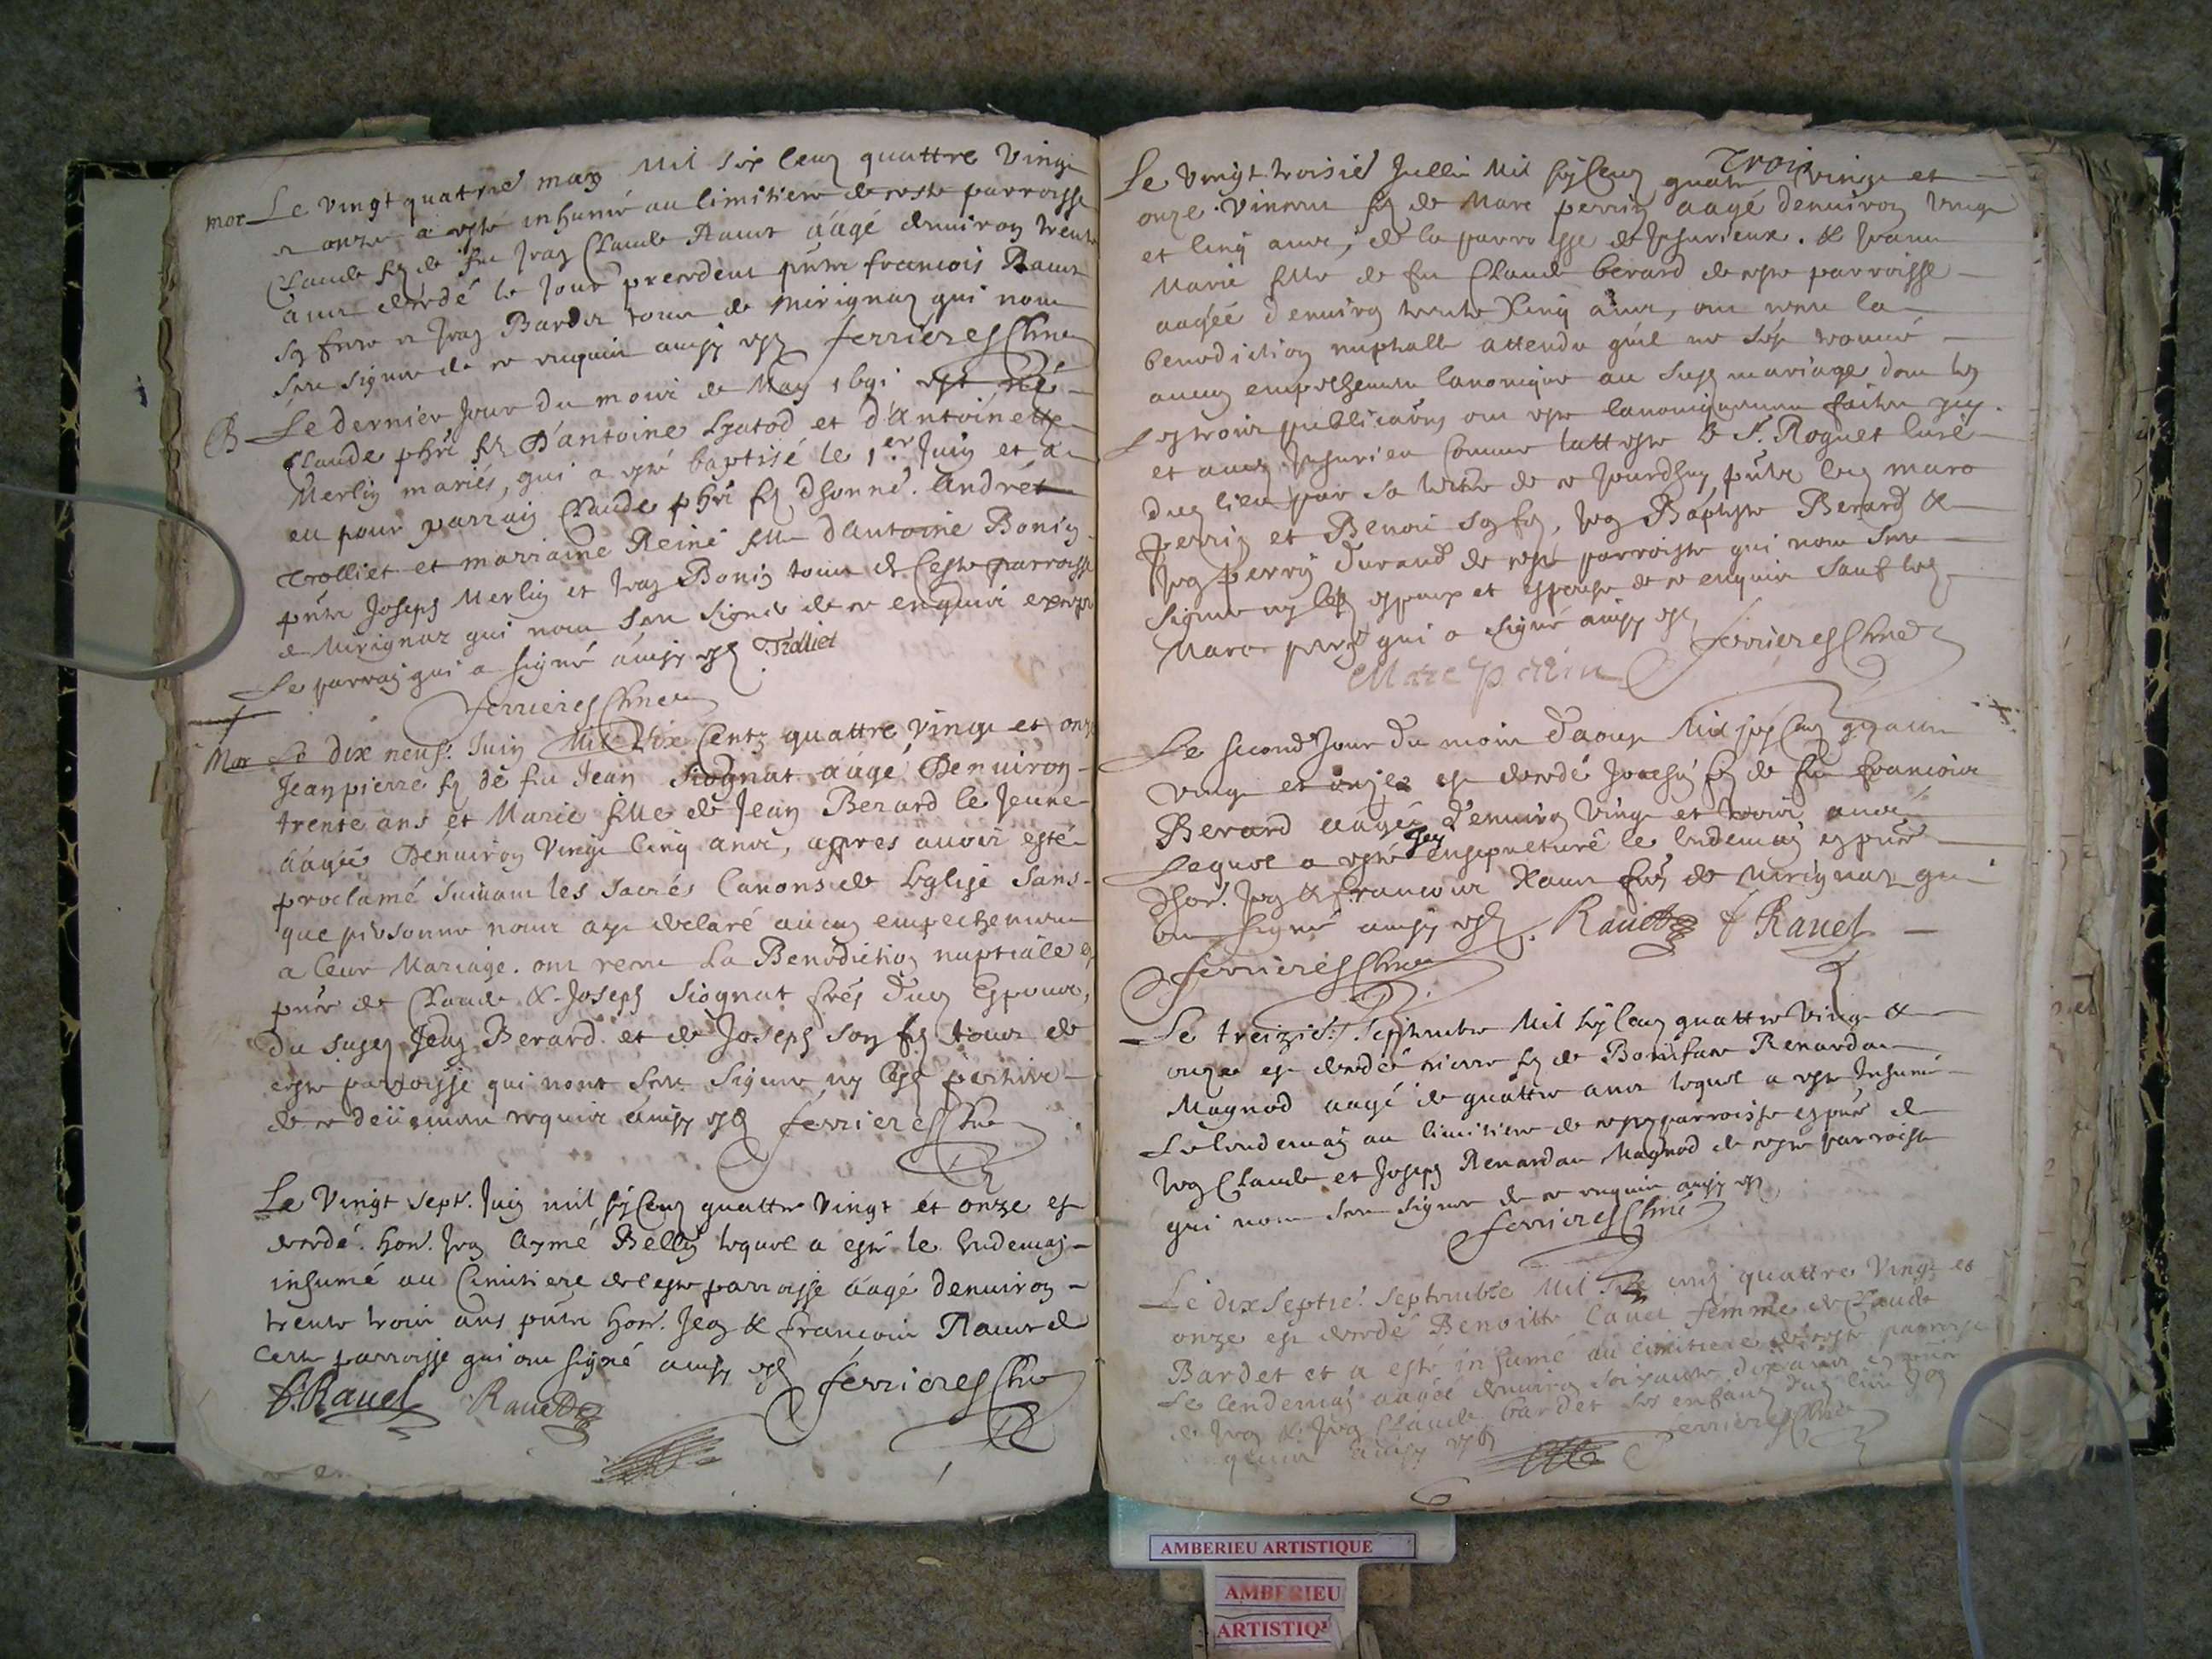 mor Le vingt quatrie may mil six cens quattre vingt
et onze a esté inhumé au cimitiere de ceste parroisse
Claude fils de feu Jean Claude aagé denviron trente
ans decedé le jour precedent pntz francois
son frere et Jean Bardet tous de mirignaz qui nont
sceu signer de ce enquis ainsy est ferrieres Cure
B Le dernier jour du mois de May 1691 est né
Claude phri fils D'antoine et d'Antoinette
Merlin mariés, qui a esté baptisé le 1er Juin et a
eu pour parrain Claude phri fils dhonne. André
Trolliet et marraine Reine fille d'Antoine Bonin
pntz Joseph Merlin et Jean Bonin tous de Ceste parroisse
de Mirignaz qui nont sceu signer de ce enquis excepté
Le parrain qui a signé ainsy est Trolliet
ferrieres Cure
Mar Le dix neuf. Juin Mil Six Centz quattre vingt et onze
Jean pierre fils de feu Jean Siognat aagé Denviron
trente ans et Marie fille de Jean Berard le Jeune
aagée Denviron vingt cinq ans, apres avoir esté
proclamé suivant les sacrés Canons de Leglise sans
que personne nous aye declaré aucun empechement
a leur Mariage. ont receu La Benediction nuptiale en
pnce de Claude & Joseph Siognat freres dud Espoux,
du susd Jean Berard et de Joseph son fils tous de
ceste parroisse qui nont sceu signer ny les parties
de ce deuement requis ainsy est ferrieres Cure
Le Vingt sept. Juin mil six cens quattre vingt et onze est
decedé. hon. Jean Aymé Belly lequel a esté le lendemain
inhumé au Cimitiere de Ceste parroisse aagé denviron
trente trois ans pntz hon. Jean & francois Ravet de
Ceste parroisse qui ont signé ainsy est ferrieres Cure
f. Ravet Ravet
Le vingt troisie Jullie mil six cens quatre vingt et
Trois
onze. Vincent fils de Marc perrin aagé denviron vingt
et cinq ans, de la parroisse de Jnsurieux. & Jeanne
Marie fille de feu Claude berard de ceste parroisse
aagée denviron trente cinq ans, ont receu la
benediction nuptialle attendu quil ne sest trouvé
aucun empechement canonique au susd mariage dont les
Les trois publications ont esté canoniquement faites icy
et aud Jnsurieu Comme latteste le Sr. Roguet Curé
dud lieu par sa lettre de ce jourdhuy pntz led marc
perrin et Benoit son fils, Jean Baptiste Berard &
Jean perrin Durand de ceste parroisse qui nont sceu
signer ny les espoux et espouse de ce enquis sauf led
Marc perrin qui a signé ainsy est ferrieres Cure
Marc perrin
Le second Jour du mois daoust Mil six cens quattre
vingt et onze est decedé Joachin fils de feu francois
Berard aagé d'environ vingt et trois ans
Lequel a esté ensepulturé le lendemain en pnce
dhon. Jean & francois Ravet freres de mirignaz qui
ont signé ainsy est. Ravet f Ravet
ferrieres Cure
Le treizie. Septembre Mil six cens quattre vingt &
onze est decedé pierre fils de Boniface Renardat
Magnod aagé de quattre ans lequel a esté Jnhumé
Le lendemain au cimitiere de ceste parroisse en pnce de
Jean Claude et Joseph Renardat Magnod de ceste parroisse
qui nont sceu signer de ce enquis ainsy est
ferrieres Curé
Le dix septie. Septembre Mil six cens quattre vingt et
onze est decedé Benoitte Cavet femme de Claude
Bardet et a esté inhumé au cimitiere de ceste parroisse
Le lendemain aagée denviron soixante dix ans en pnce
de Jean & Jean Claude bardet ses enfans dud lieu
enquis ainsy est ferrieres Cure
AMBERIEU ARTISTIQUE
AMBERIEU
ARTISTIQ